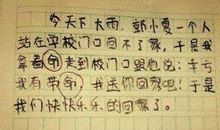 今天下大雨，郭小夏一个人
站在学校门口回不了家，于是我
拿着命走到校门口跟他说：亏
我有带命，我送你回家吧！于是
我们快快乐乐的回家了。